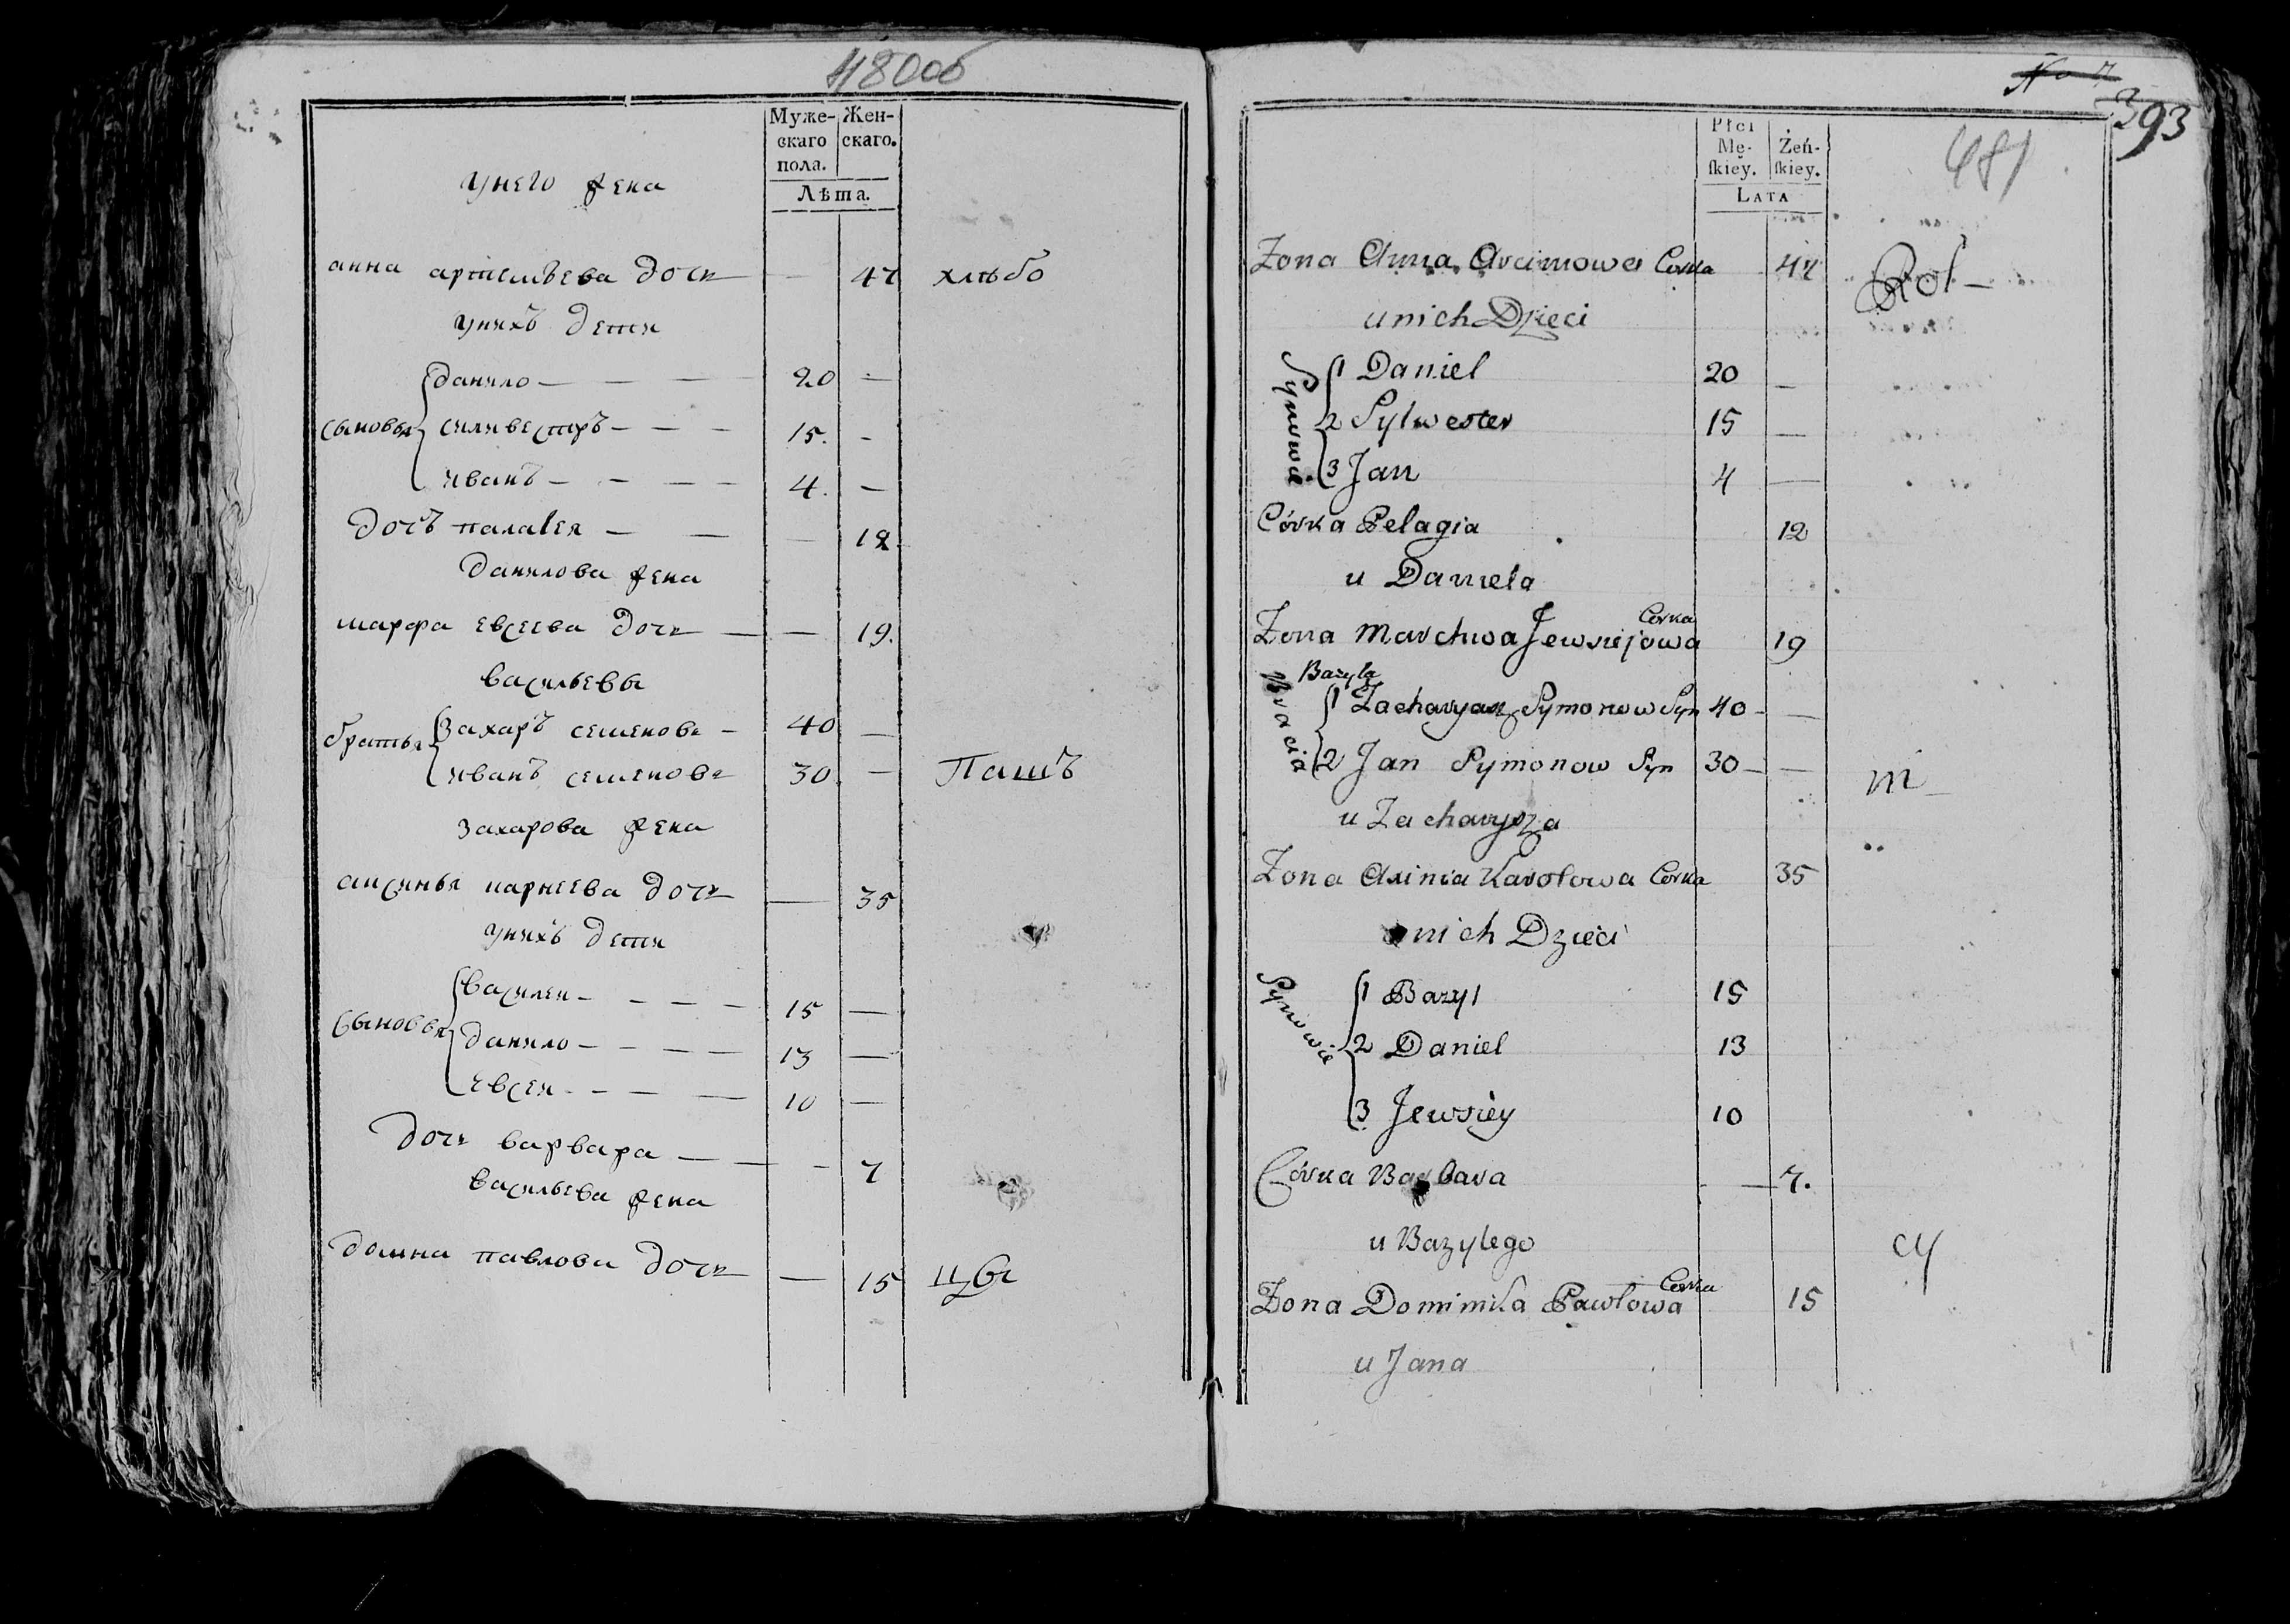 480об
Муже-
скаго
пола.
Жен-
скаго.
Лѣта.
унего жена
анна артемьева дочь — 47 хлѣбо
унихъ дети
сыновья
данило — — — 20 —
силивестръ — — — 15. —
иванъ — — — — 4. —
дочъ палагея — — — 12.
данилова жена
марфа евсеева дочь — — 19.
васильевы
братья
захаръ семеновъ — 40 —
иванъ семеновъ 30. — Пашъ
захарова жена
аксинья карнеева дочь — 35
унихъ дети
сыновья
василеи — — — — 15 —
данило — — — — 13 —
евсеи — — — — 10 —
дочь варвара — — — 7
васильева жена
домна павлова дочь — 15
No 7
393
481
Płci
Mę-
ſkiey.
Żeń-
ſkiey.
LATA
Zona Anna Arcimowa Corka 47 Rol —
u nich Dzieci
Synowie
1 Daniel 20 —
2 Sylwester 15 —
3 Jan 4 —
Córka Pelagia 12
u Daniela
Zona Marchwa Jewsiejowa Corka 19
Bazyla
Bracia
1 Zacharyasz Symonow Syn 40 — —
2 Jan Symonow Syn 30 — — m —
u Zacharysza
Zona Axinia Karolowa Corka 35
u nich Dzieci
Synowie
1 Bazyl 15
2 Daniel 13
3 Jewsiey 10
Córka Barbara — 7.
u Bazylego
Zona Dominika Pawłowa Corka 15
u Jana